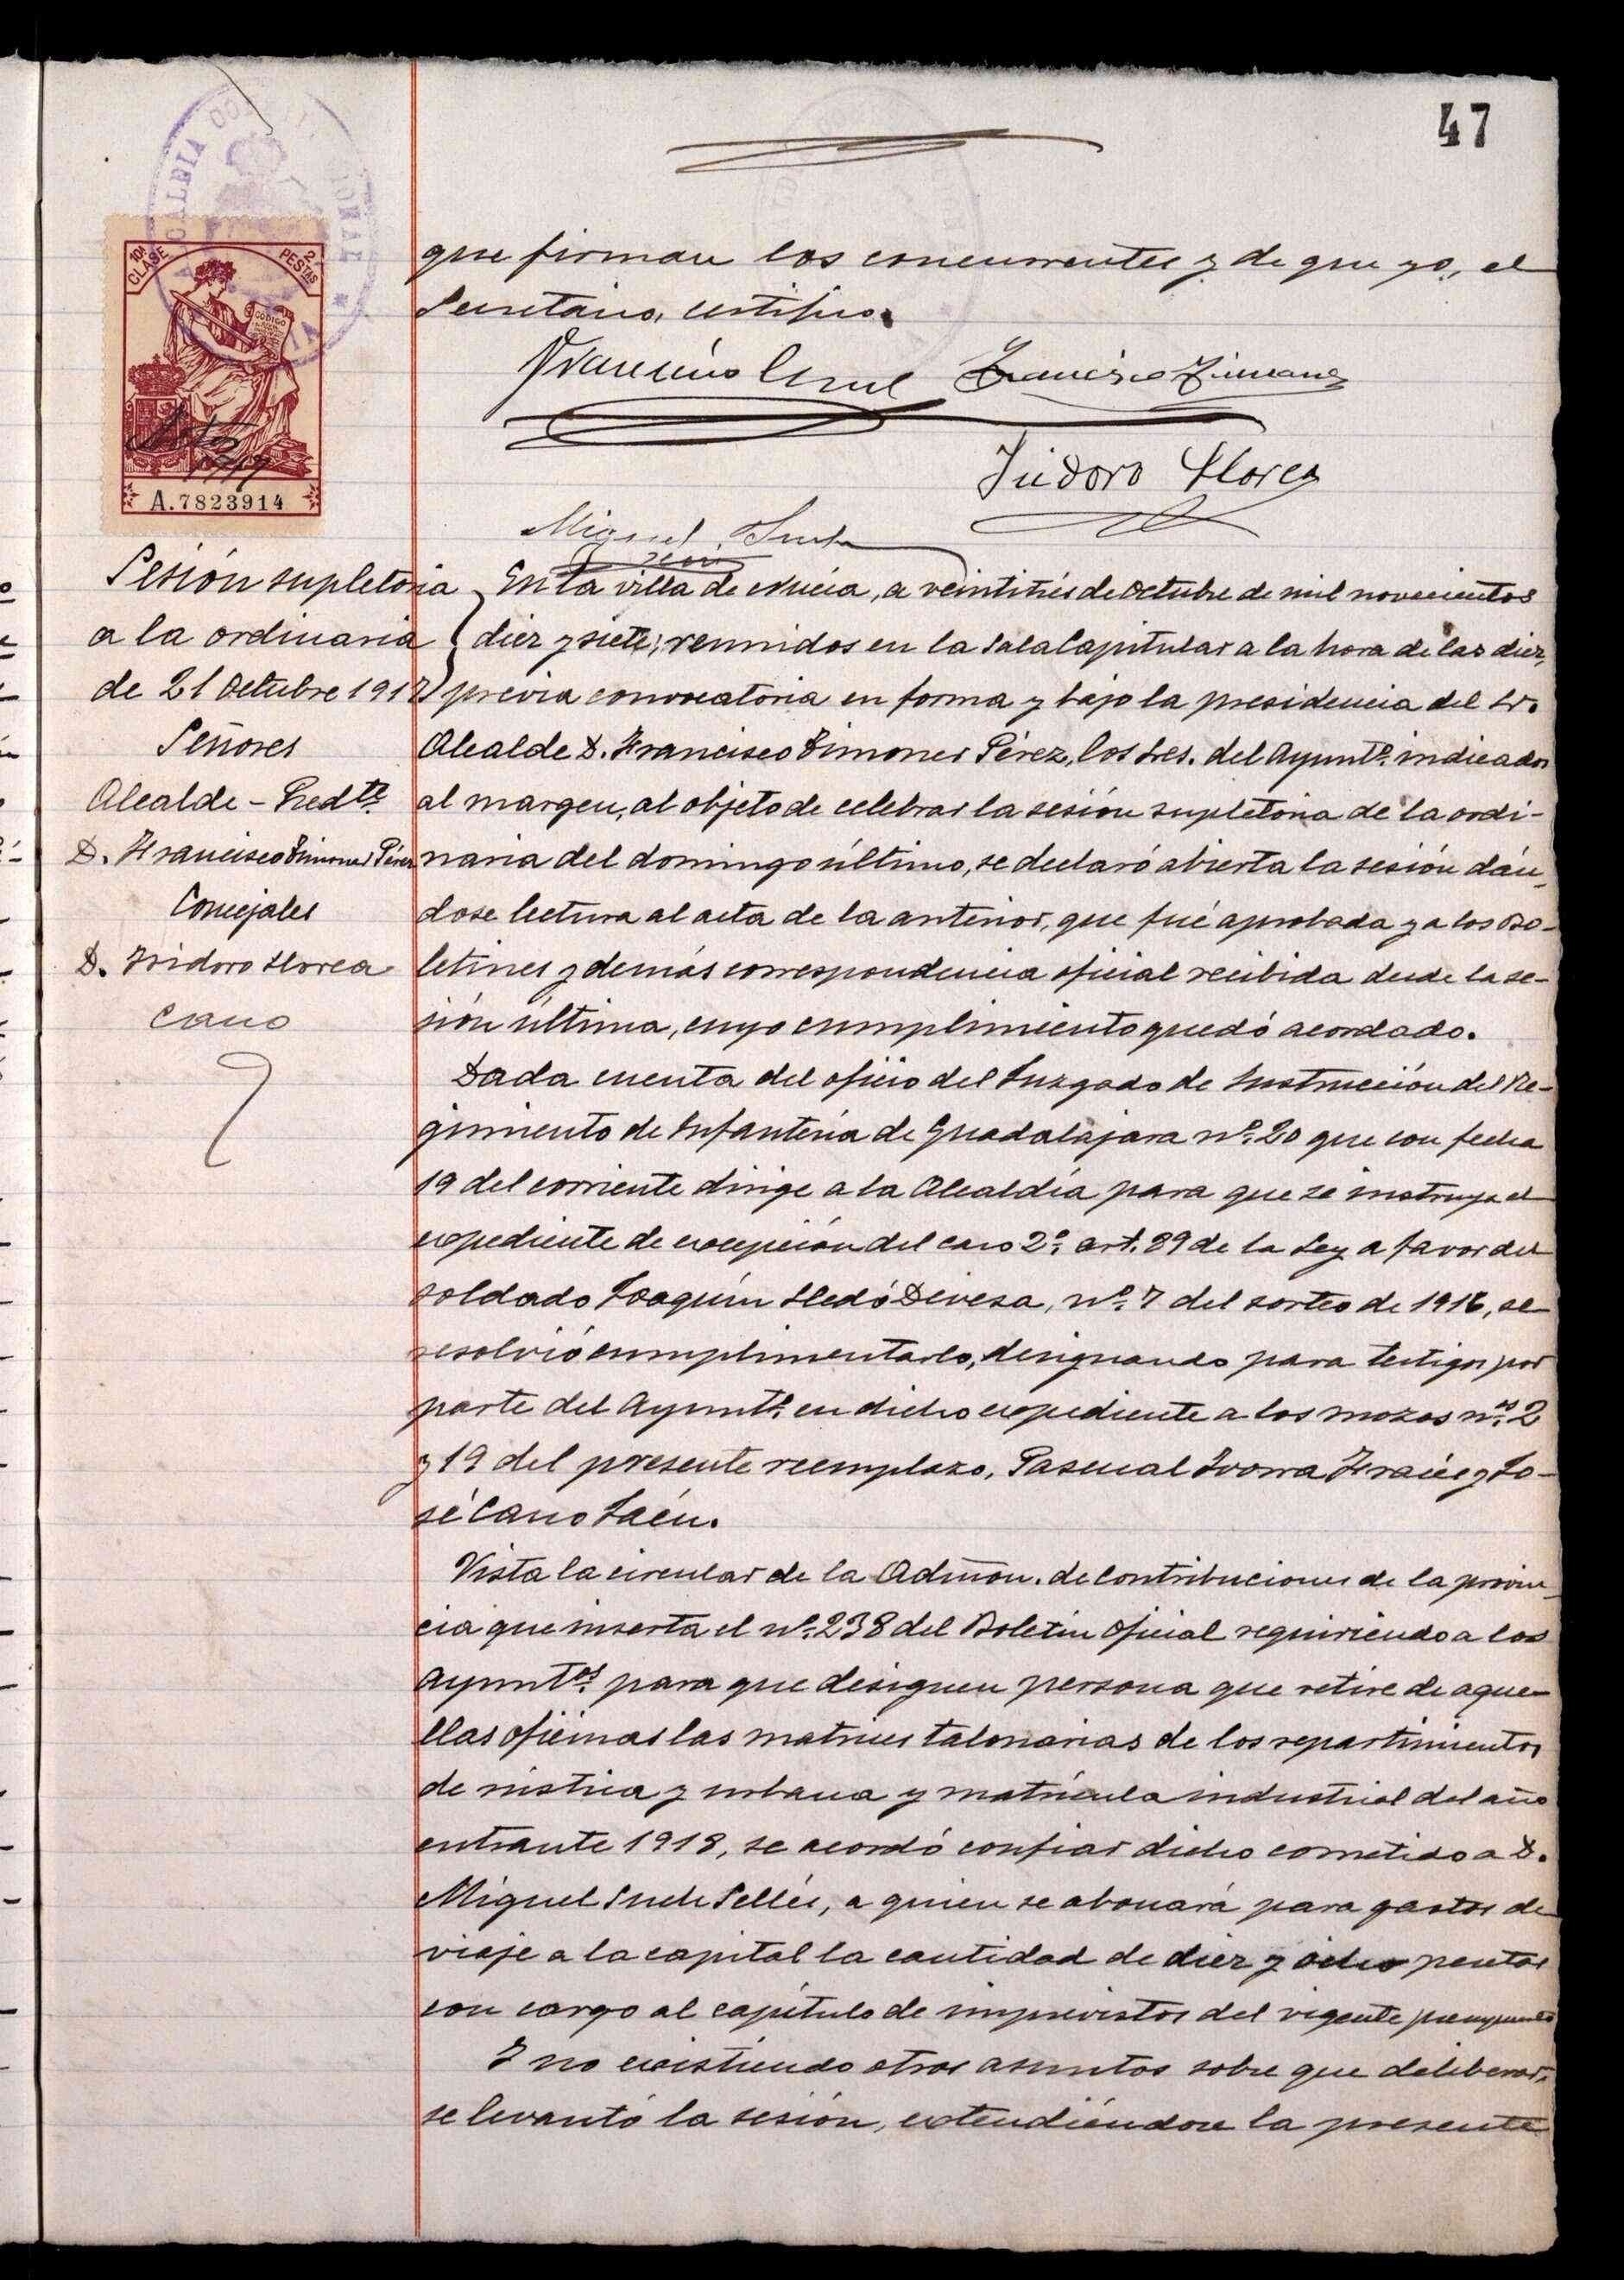 47
ALCALDIA CONSTITUCIONAL
10ª CLASE
2 PESTAS
CÓDIGO
A.7823914
que firman los concurrentes y de que yo, el
Secretario, certifico.
Francisco
Isidoro Llorca
Miguel
Srio
Sesión supletoria
a la ordinaria
de 21 Octubre 1917
Señores
Alcalde - Predte
D. Francisco Ximenes Pérez
Concejales
D. Isidoro Llorca
Cano
En la villa de Nucia, a veintitrés de Octubre de mil novecientos
diez y siete; reunidos en la Sala Capitular a la hora de las diez,
previa convocatoria en forma y bajo la presidencia del Sr.
Alcalde D. Francisco Ximenes Pérez, los Sres. del Ayuntº. indicados
al margen, al objeto de celebrar la sesión supletoria de la ordi-
naria del domingo último, se declaró abierta la sesión dán-
dose lectura al acta de la anterior, que fué aprobada y a los Bo-
letines y demás correspondencia oficial recibida desde la se-
sión última, cuyo cumplimiento quedó acordado.
Dada cuenta del oficio del Juzgado de Instrucción del Re-
gimiento de Infantería de Guadalajara nº. 20 que con fecha
19 del corriente dirige a la Alcaldía para que se instruya el
expediente de excepción del caso 2º. art. 89 de la Ley a favor del
soldado Joaquín Lledó Devesa, nº. 7 del sorteo de 1916, se
resolvió cumplimentarlo, designando para testigos por
parte del Ayuntº. en dicho expediente a los mozos nºs. 2
y 19 del presente reemplazo, Pascual Ivorra y Jo-
sé Cano Saén.
Vista la circular de la Admon. de Contribuciones de la provin-
cia que inserta el nº. 238 del Boletín Oficial requiriendo a los
Ayuntºs. para que designen persona que retire de aque-
llas oficinas las matrices talonarias de los repartimientos
de rústica y urbana y matrícula industrial del año
entrante 1918, se acordó confiar dicho cometido a D.
Miguel Such Sellés, a quien se abonará para gastos de
viaje a la capital la cantidad de diez y ocho pesetas
con cargo al capítulo de imprevistos del vigente presupuesto
Y no existiendo otros asuntos sobre que deliberar,
se levantó la sesión, extendiéndose la presente